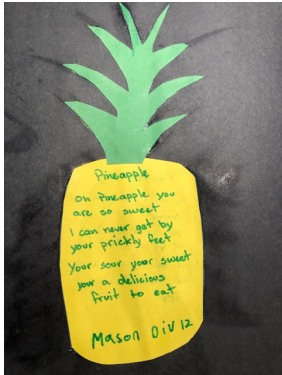 Pineapple
oh Pineapple you
are so sweet
I can never get by
your prickly feet
Your sour your sweet
your a delicious
fruit to eat
Mason Div 12